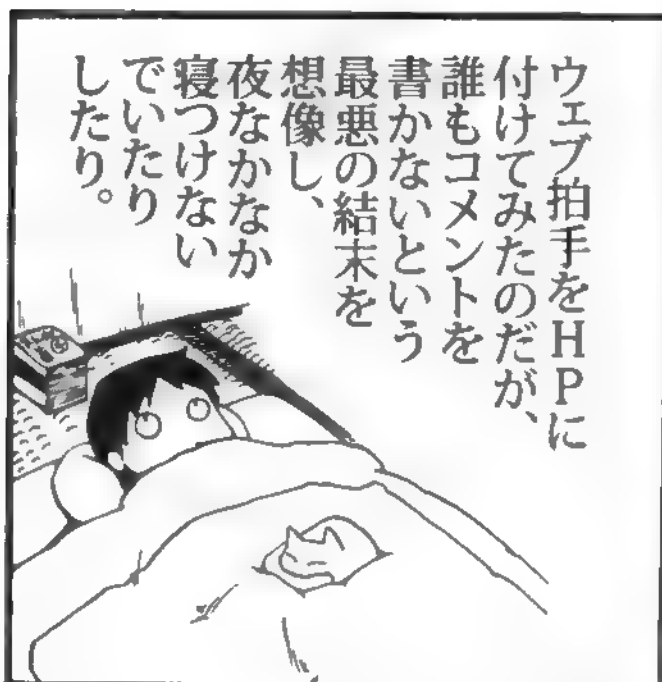 ウェブ拍手をHPに
付けてみたのだが、
誰もコメントを
書かないという
最悪の結末を
想像し、
夜なかなか
寝つけない
でいたり
したり。